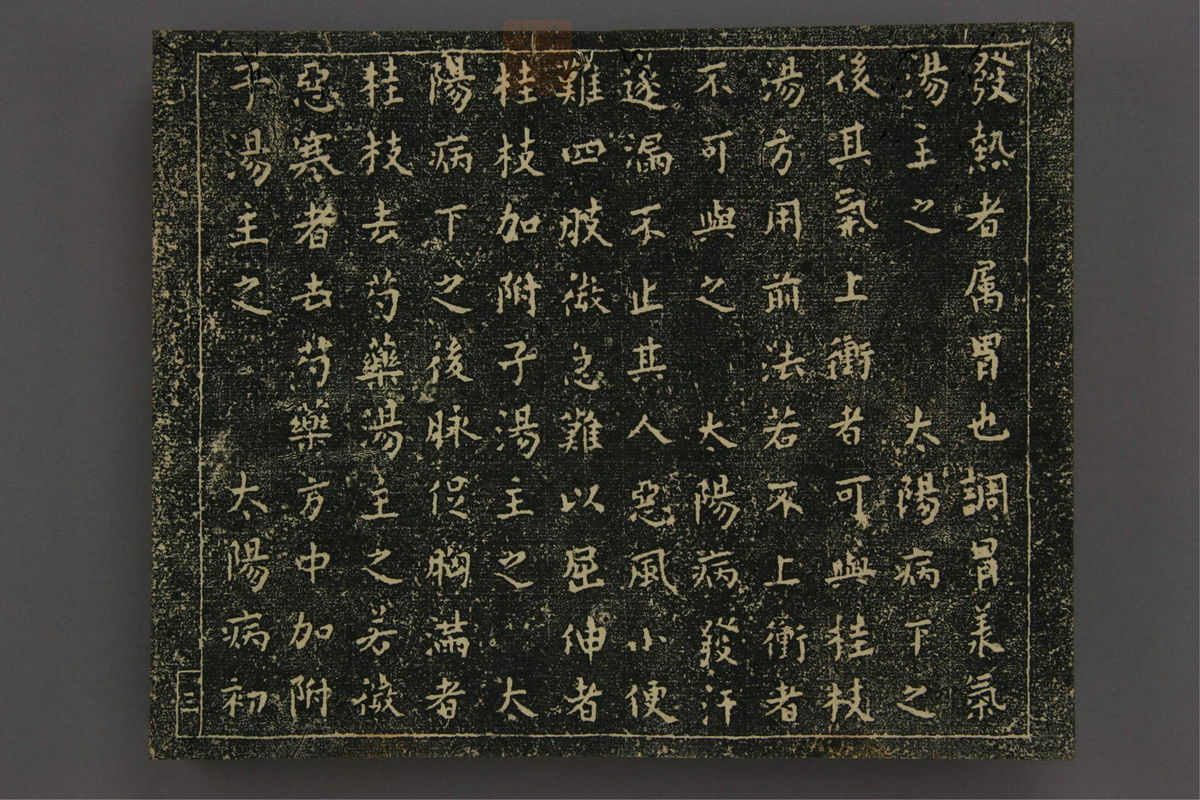 發熱者属胃也調胃羕氣
湯主之　太陽病下之
後其氣上衝者可與桂枝
湯方用前法若不上衝者
不可與之　太陽病發汗
遂漏不止其人惡風小便
難四肢微急難以屈伸者
桂枝加附子湯主之　太
陽病下之後脉促胸滿者
桂枝去芍藥湯主之若微
惡寒者去芍藥方中加附
子湯主之　太陽病初
三